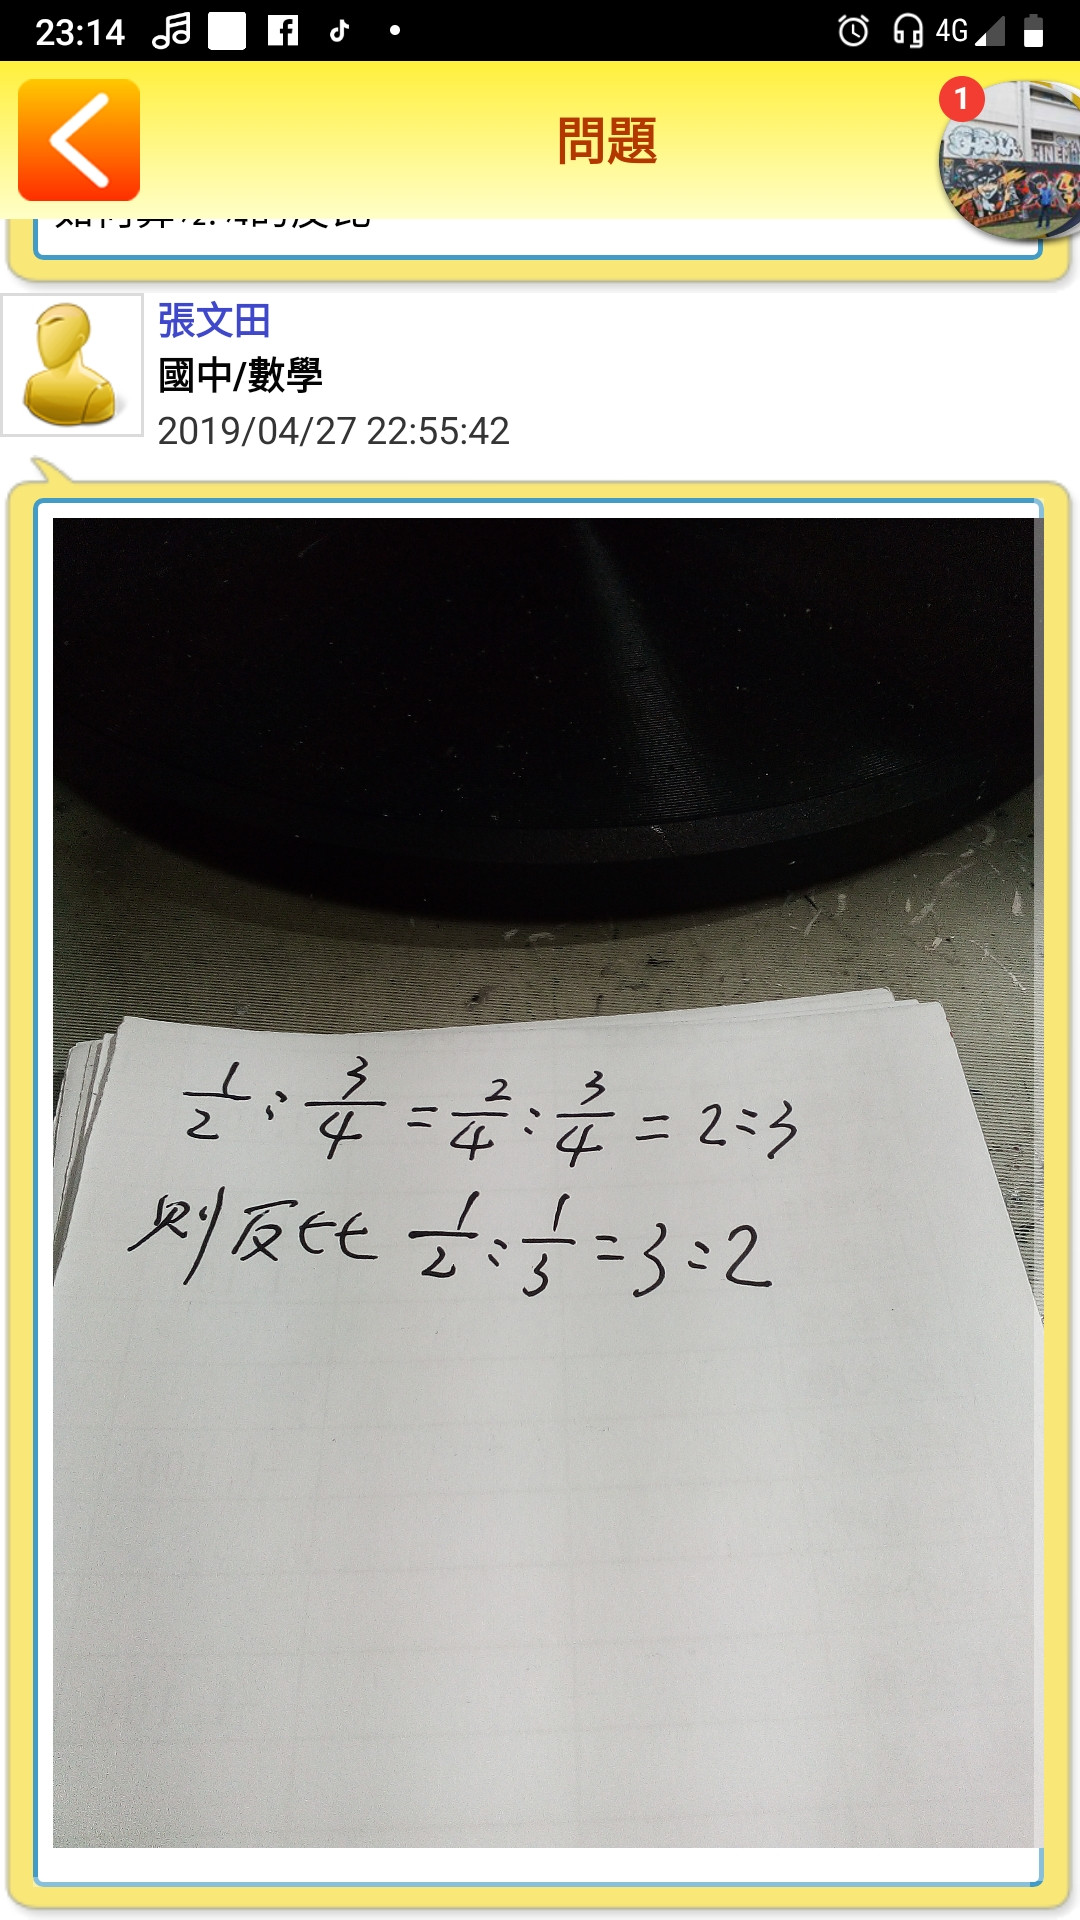 23:14
4G
問題
1
張文田
國中/數學
2019/04/27 22:55:42
1/2 : 3/4 = 2/4 : 3/4 = 2:3
則反比 1/2 : 1/3 = 3:2